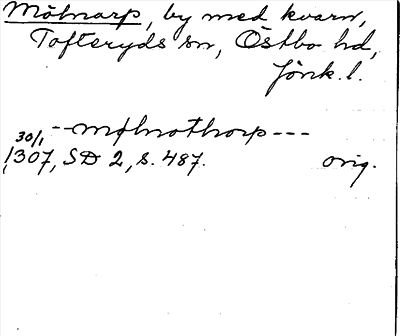 Mölnarp, by med kvarn,
Tofteryds sn, Östbo hd,
Jönk. l.
-- mølnothorp ---
30/1
1307, SD 2, s. 487. orig.